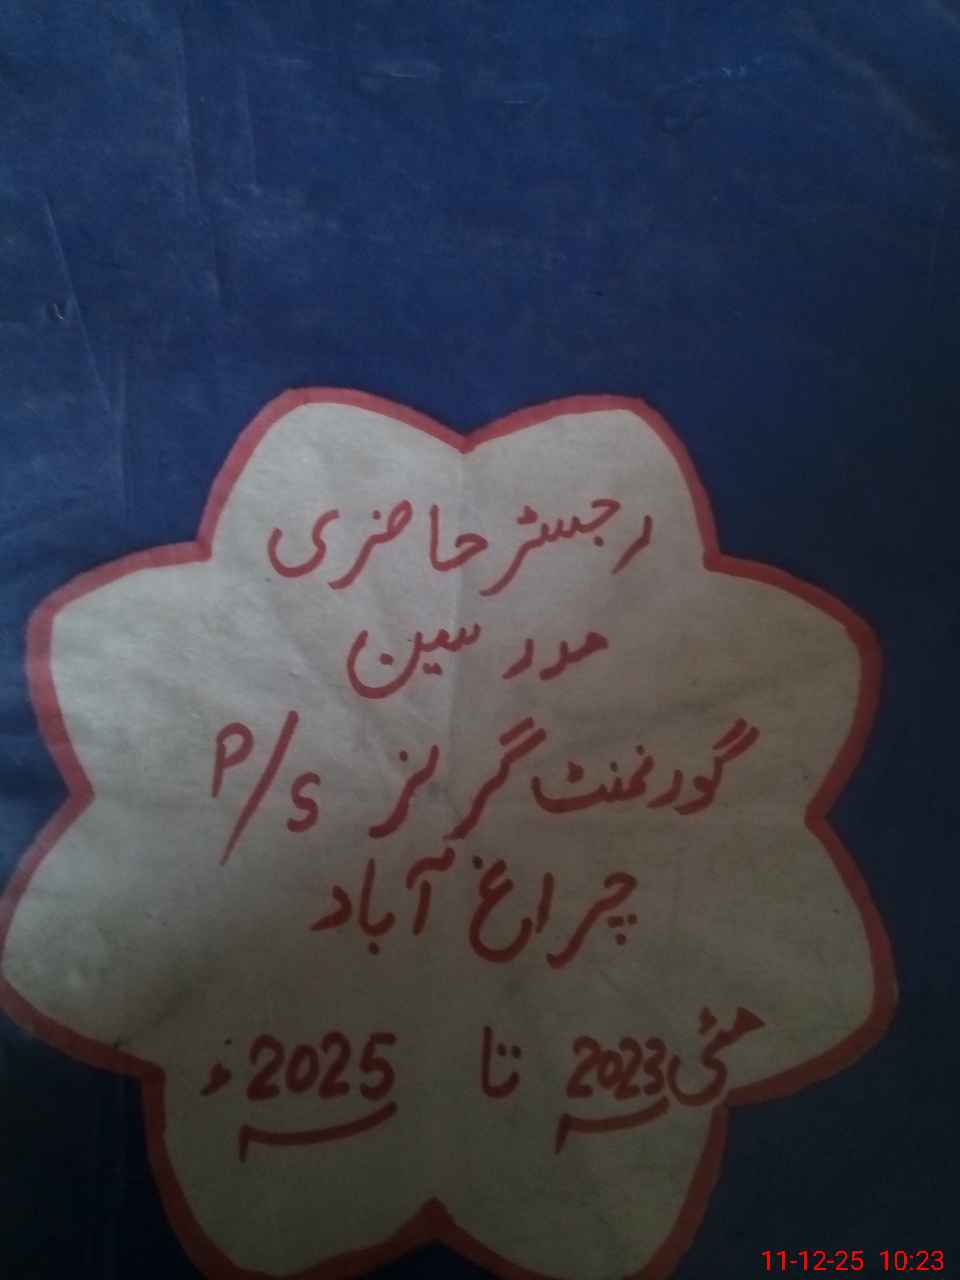 رجسٹر حاضری
مدرسین
گورنمنٹ گرلز P/S
چراغ آباد
مئی 2023 تا 2025ء
11-12-25 10:23